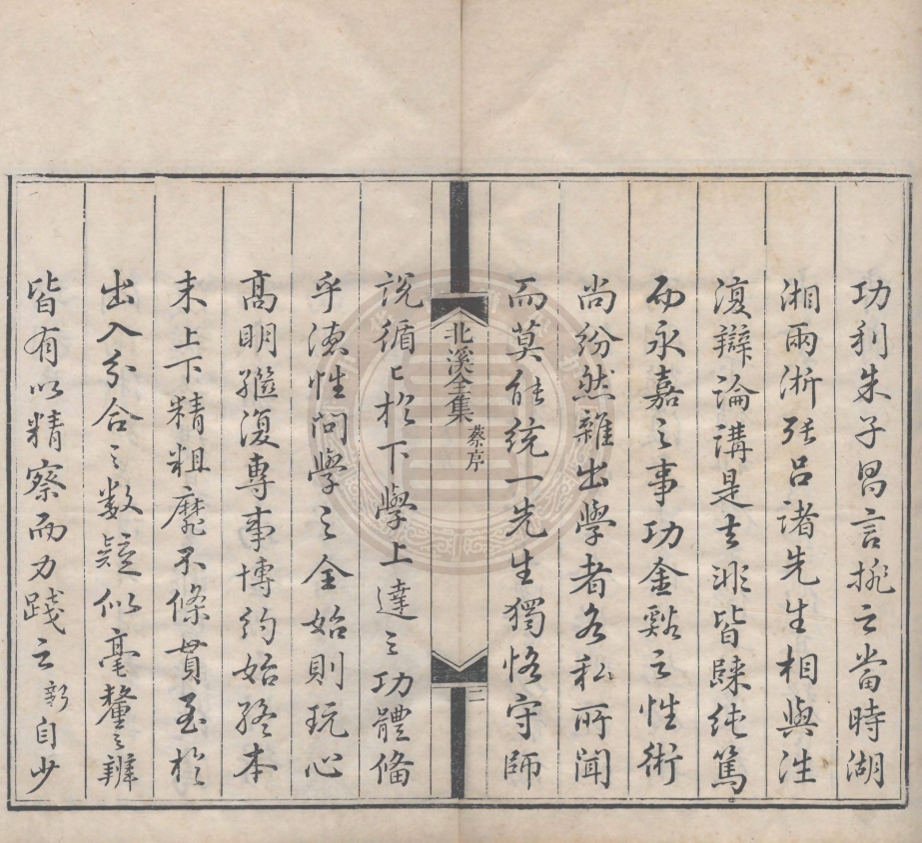 功利朱子昌言排之當時湖
湘兩浙張呂諸先生相與往
復辯論講是去非皆臻純篤
而永嘉之事功金谿之性術
尚紛然雜出學者各私所聞
而莫能統一先生獨恪守師
北溪全集
蔡序
二
說循〻於下學上達之功體備
乎德性問學之全始則玩心
高明繼復專事博約始終本
末上下精粗靡不條貫至於
出入分合之数疑似毫釐之辨
皆有以精察而力踐之新自少